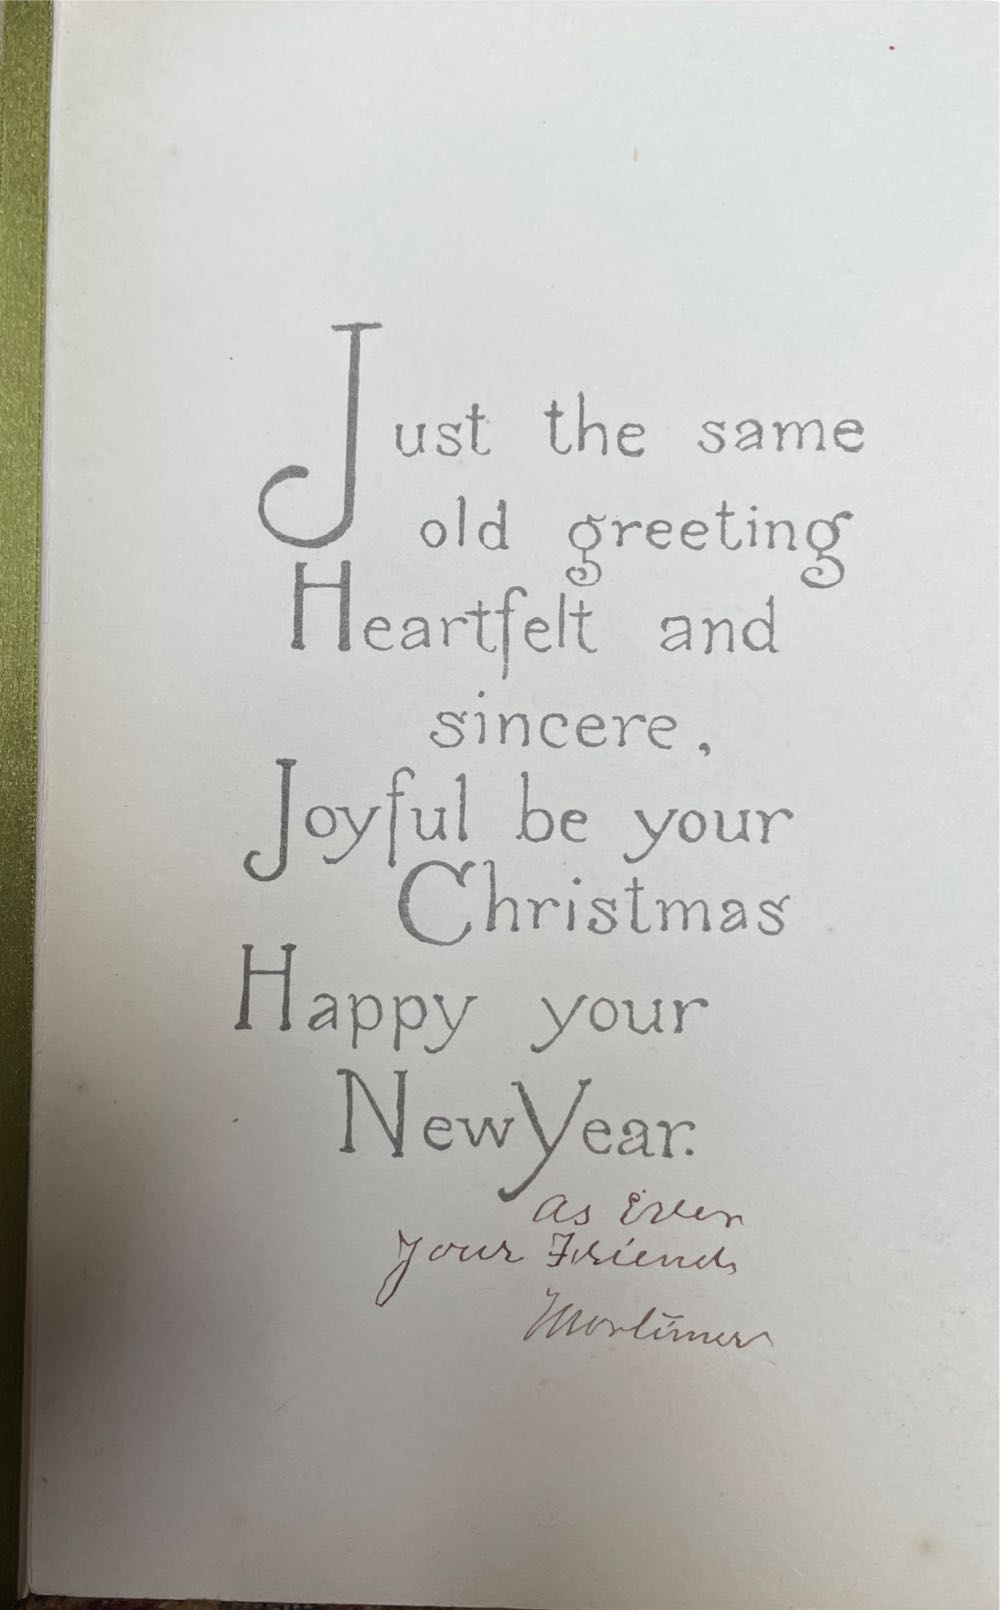 Just the same
old greeting
Heartfelt and
sincere,
Joyful be your
Christmas
Happy your
New Year.
As Ever
Your Friend
Mortimer